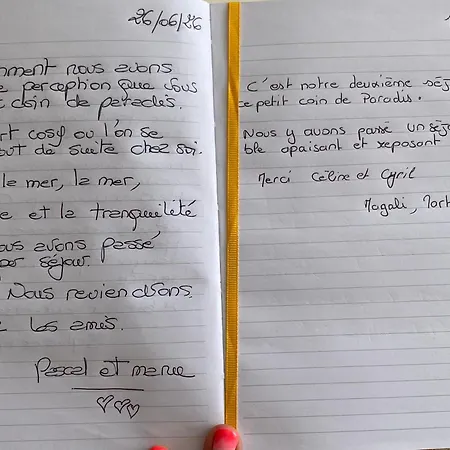 26/06/26
mment nous avons
perception que vous
coin de paradis.
rt cosy ou l'on se
out de suite chez soi.
le mer, le mer,
e et la tranquilité
ous avons passé
séjour.
Nous reviendrons.
les amis.
Pascal et marie
C'est notre deuxième séj
ce petit coin de Paradis.
Nous y avons passé un séj
ble apaisant et reposant
Merci Céline et Cyril
Magali,